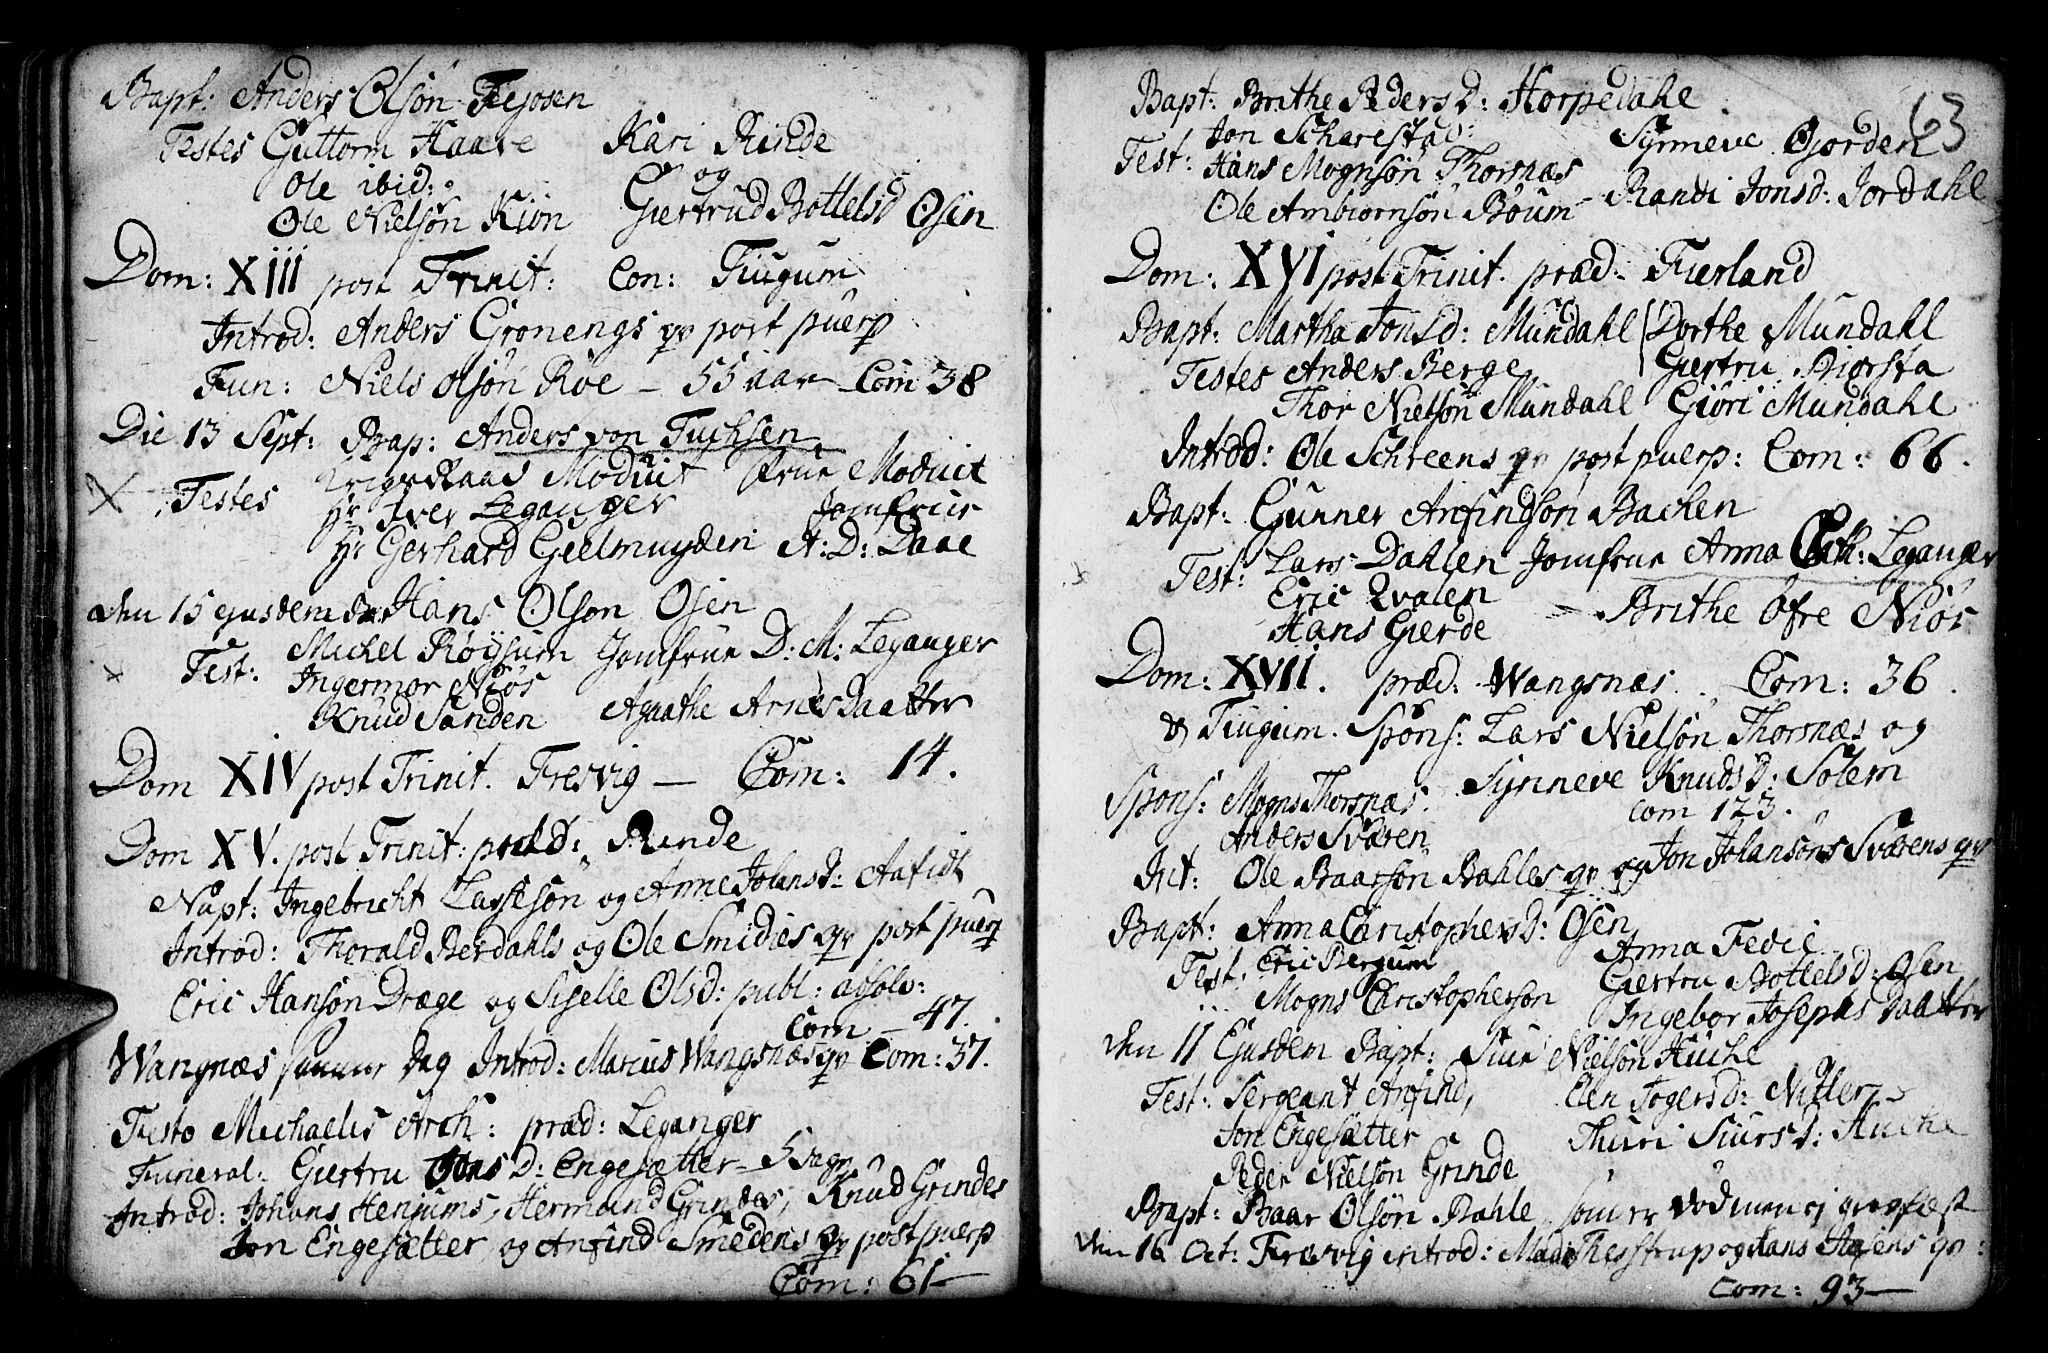 Bapt: Anders Olsön Fejosen
Testes Guttorm Haave Kari Rinde
Ole ibid: og
Ole Nielsön Kiön Giertrud Bottelsd Osen
Dom: XIII post Trinit: Con: Tiugum
Introd: Anders Gronengs qv post puerp
Fun: Niels Olsön Röe – 55 aar – Com 38
Die 13 Sept: Bap: Anders von Tuchsen
X Testes Krigsraad Moduit Frue Moduit
Hr Iver Leganger Jomfrue
Hr Gerhard Geelmuyden A: D: Daae
den 15 ejusdem Hans Olsön Osen
x Test: Michel Röysum Jomfrue D: M: Leganger
Ingermor Niös
Knud Sanden Agaathe Arnesdaatter
Dom XIV post Trinit. Fresvig – Com: 14.
Dom XV. post Trinit: præd: Rinde
Bapt: Ingebricht Lassesön og Anne Johansd: Aafidt
Introd: Thorald Berdahls og Ole Smidies qv post puerp
Eric Hansön Drægе og Siselle Olsd: publ: absolv:
Com – 47.
Wangnæs samme dag Introd: Marcus Wangsnæs qv Com: 37.
Festo Michaelis Arch: præd: Leganger
Funeral: Giertru Jons D: Engesætter – 5 dage
Introd: Johans Henjums, Hermund Grindes, Knud Grindes
Jon Engesætter og Anfind Smedens qv post puerp
Com: 61 –
63
Bapt: Brithe Pedersd: Horpedahl
Test: Jon Scharestad Synneve Gjorden
Hans Mognsön Thorsnæs
Ole Ambiörnsön Böum – Randi Jonsd: Jordahl
Dom: XVI post Trinit. præd: Fierland
Bapt: Martha Jonsd: Mundahl Dorthe Mundahl
Testes Anders Berge Giertru Biorsta
Thor Nielsön Mundahl Giöri Mundahl
Introd: Ole Schreens qv post puerp: Com: 66.
Bapt: Gunner Anfindsön Bachen
Test: Lars Dahlen Jomfrue Anna Cath: Leganger
Eric Qvalen
Hans Gierde – Brithe Öfre Niös
Dom: XVII. præd: Wangsnæs. Com: 36.
& Tiugum. Spons: Lars Nielsön Thorsnæs og
Spons: Mogns Thorsnæs. Synneve Knudsd: Solem
Anders Sværen Com 123.
Int: Ole Baarsön Bahles qv og Jon Johansöns Sværens qv
Bapt: Anna Christophersd: Osen
Test: Eric Bergum Anna Fedie
Mogns Christophersön Giertru Bottelsd: Osen
Ingebor Josephsdaatter
den 11 Ejusdem Bapt: Siur Nielsön Huchl
Test: Sergeant Anfind, Elen Jogersd: Nitter
Jon Engesætter Thuri Siursd: Huchl
Peder Nielsön Grinde
Bapt: Baar Olsön Bahle som er
den 16 Oct: Fresvig introd: Mads Thestrup og Hans Aasens qv:
Com: 93 –